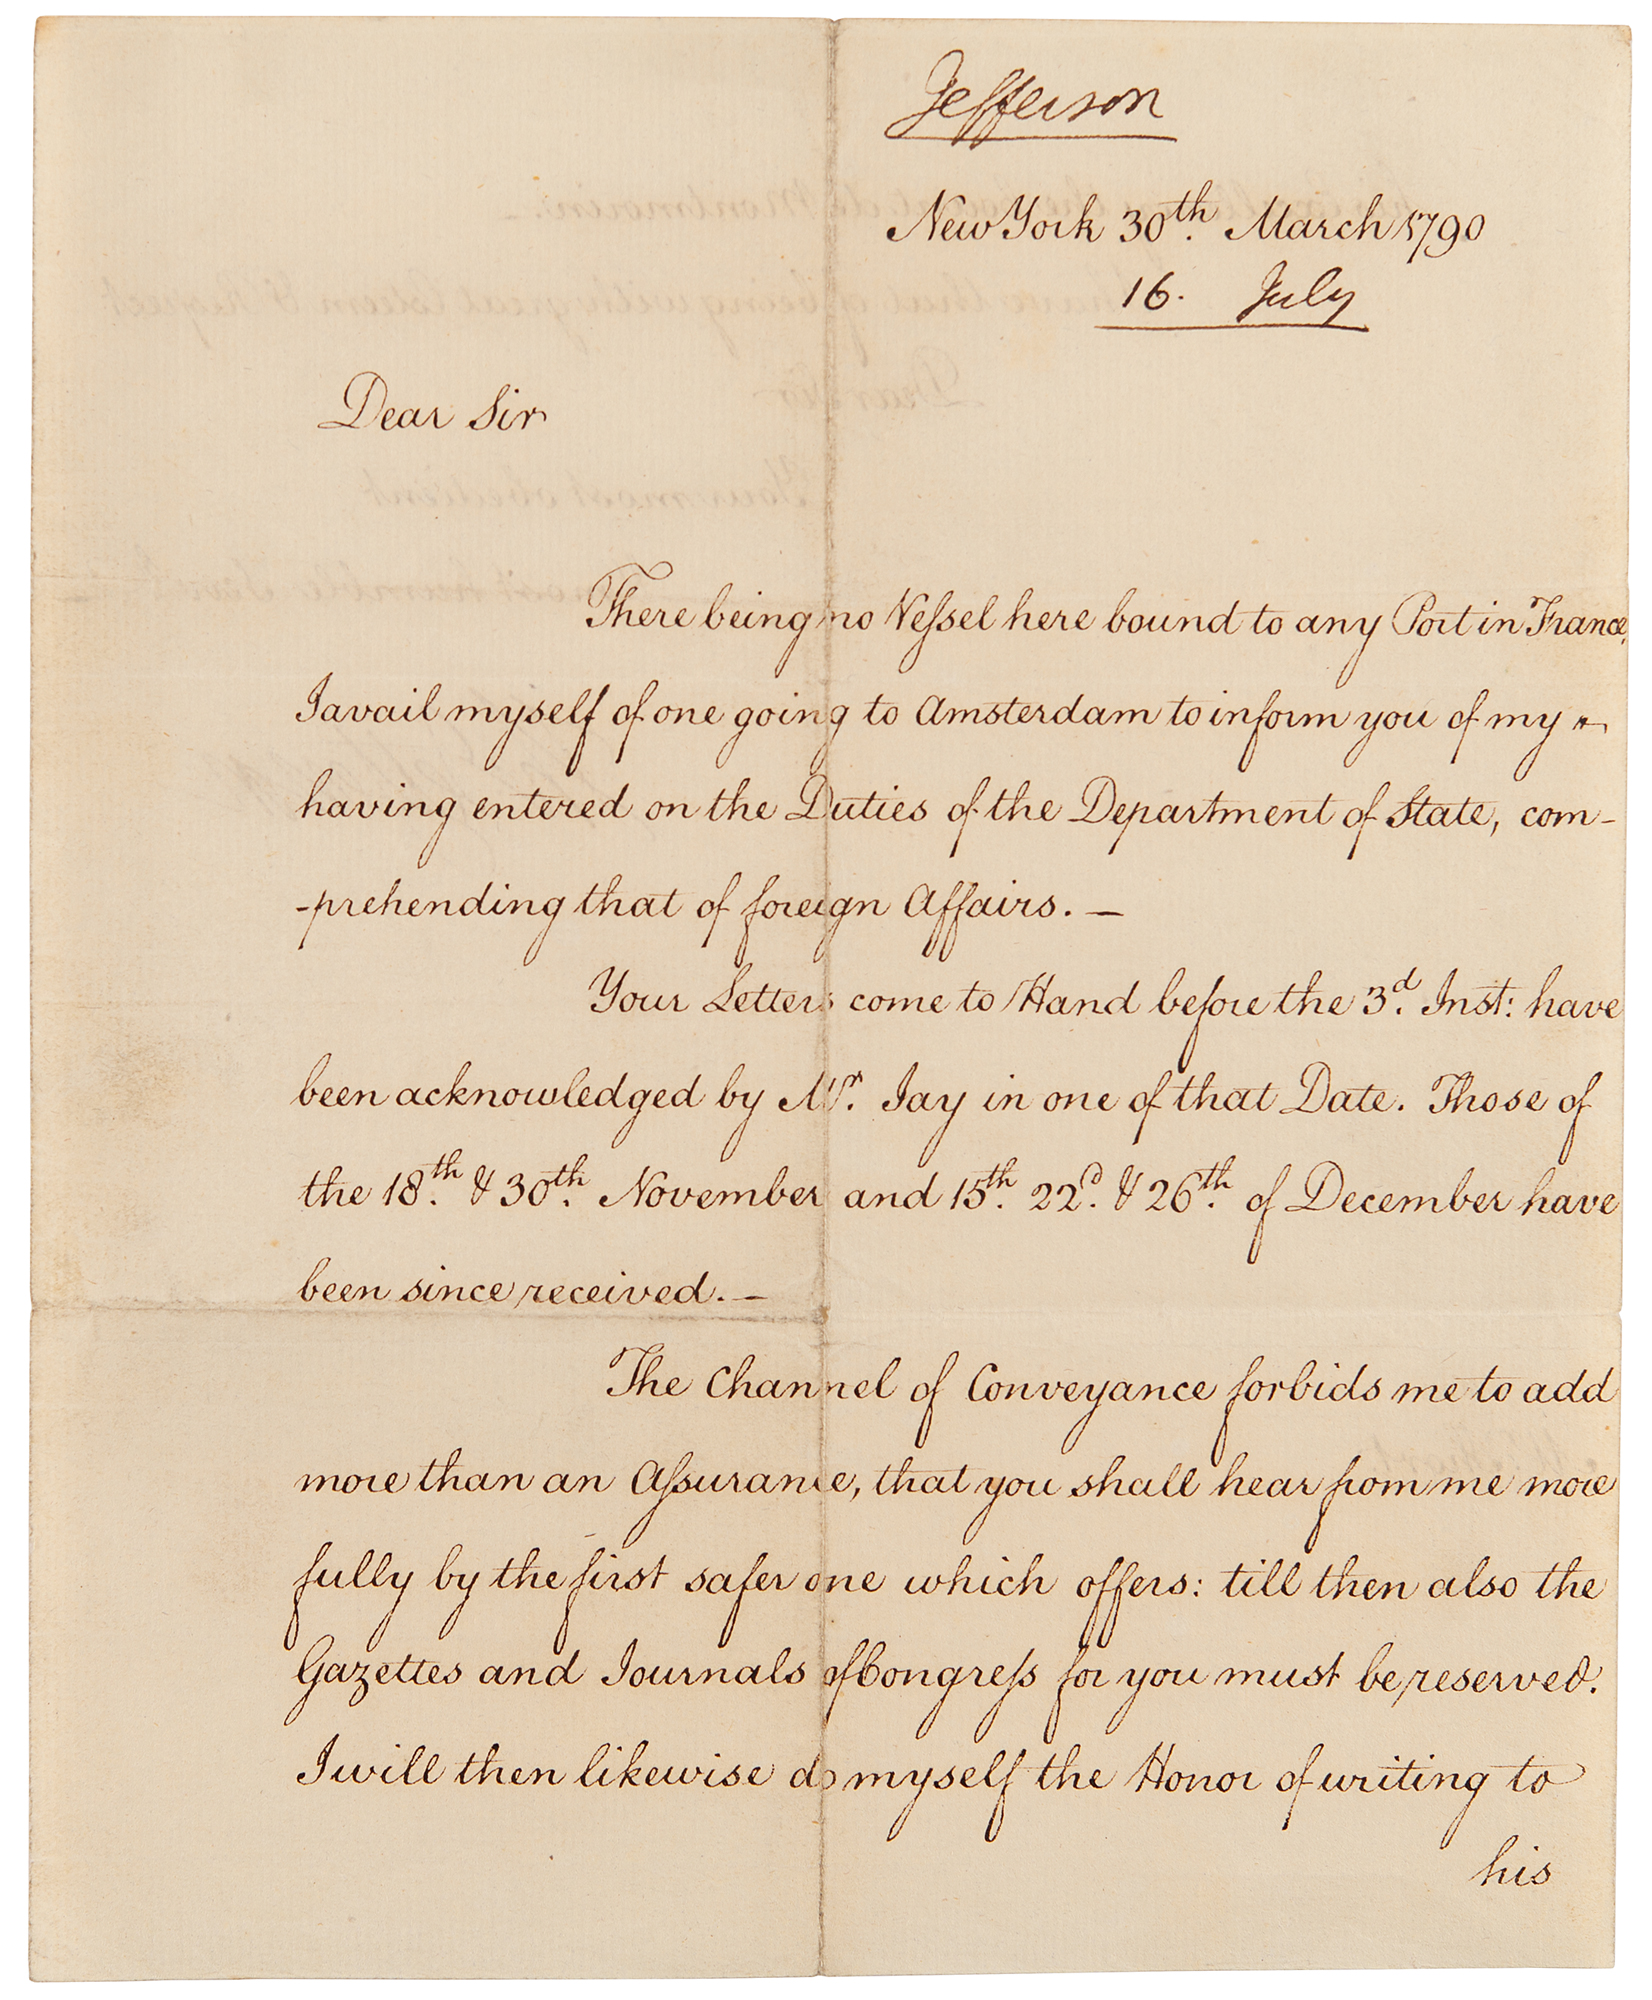 Jefferson
New York 30th. March 1790
16. July
Dear Sir
There being no Veſsel here bound to any Port in France,
I avail myself of one going to Amsterdam to inform you of my
having entered on the Duties of the Department of State, com-
-prehending that of foreign Affairs. —
Your Letters come to Hand before the 3d. Inst: have
been acknowledged by Mr. Jay in one of that Date. Those of
the 18th. & 30th. November and 15th. 22d. & 26th. of December have
been since received. —
The Channel of Conveyance forbids me to add
more than an Aſsurance, that you shall hear from me more
fully by the first safer one which offers: till then also the
Gazettes and Journals of Congreſs for you must be reserved.
I will then likewise do myself the Honor of writing to
his